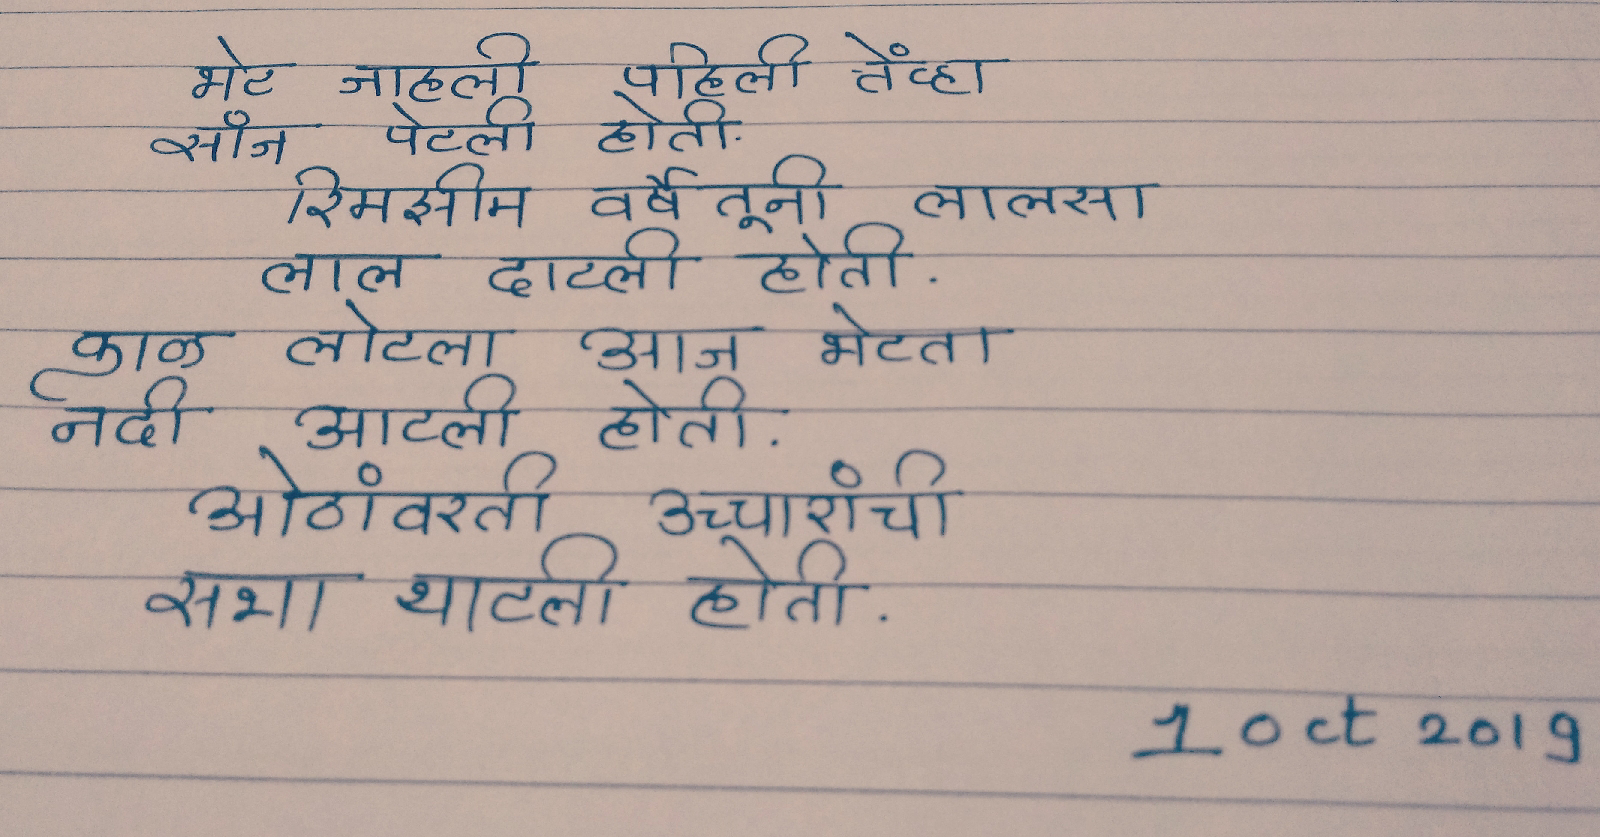 भेट जाहली पहिली तेंव्हा
साँज पेटली होती.
रिमझीम वर्षेतूनी लालसा
लाल दाटली होती.
काळ लोटला आज भेटता
नदी आटली होती.
ओठांवरती उच्चारांची
सभा थाटली होती.
1 Oct 2019